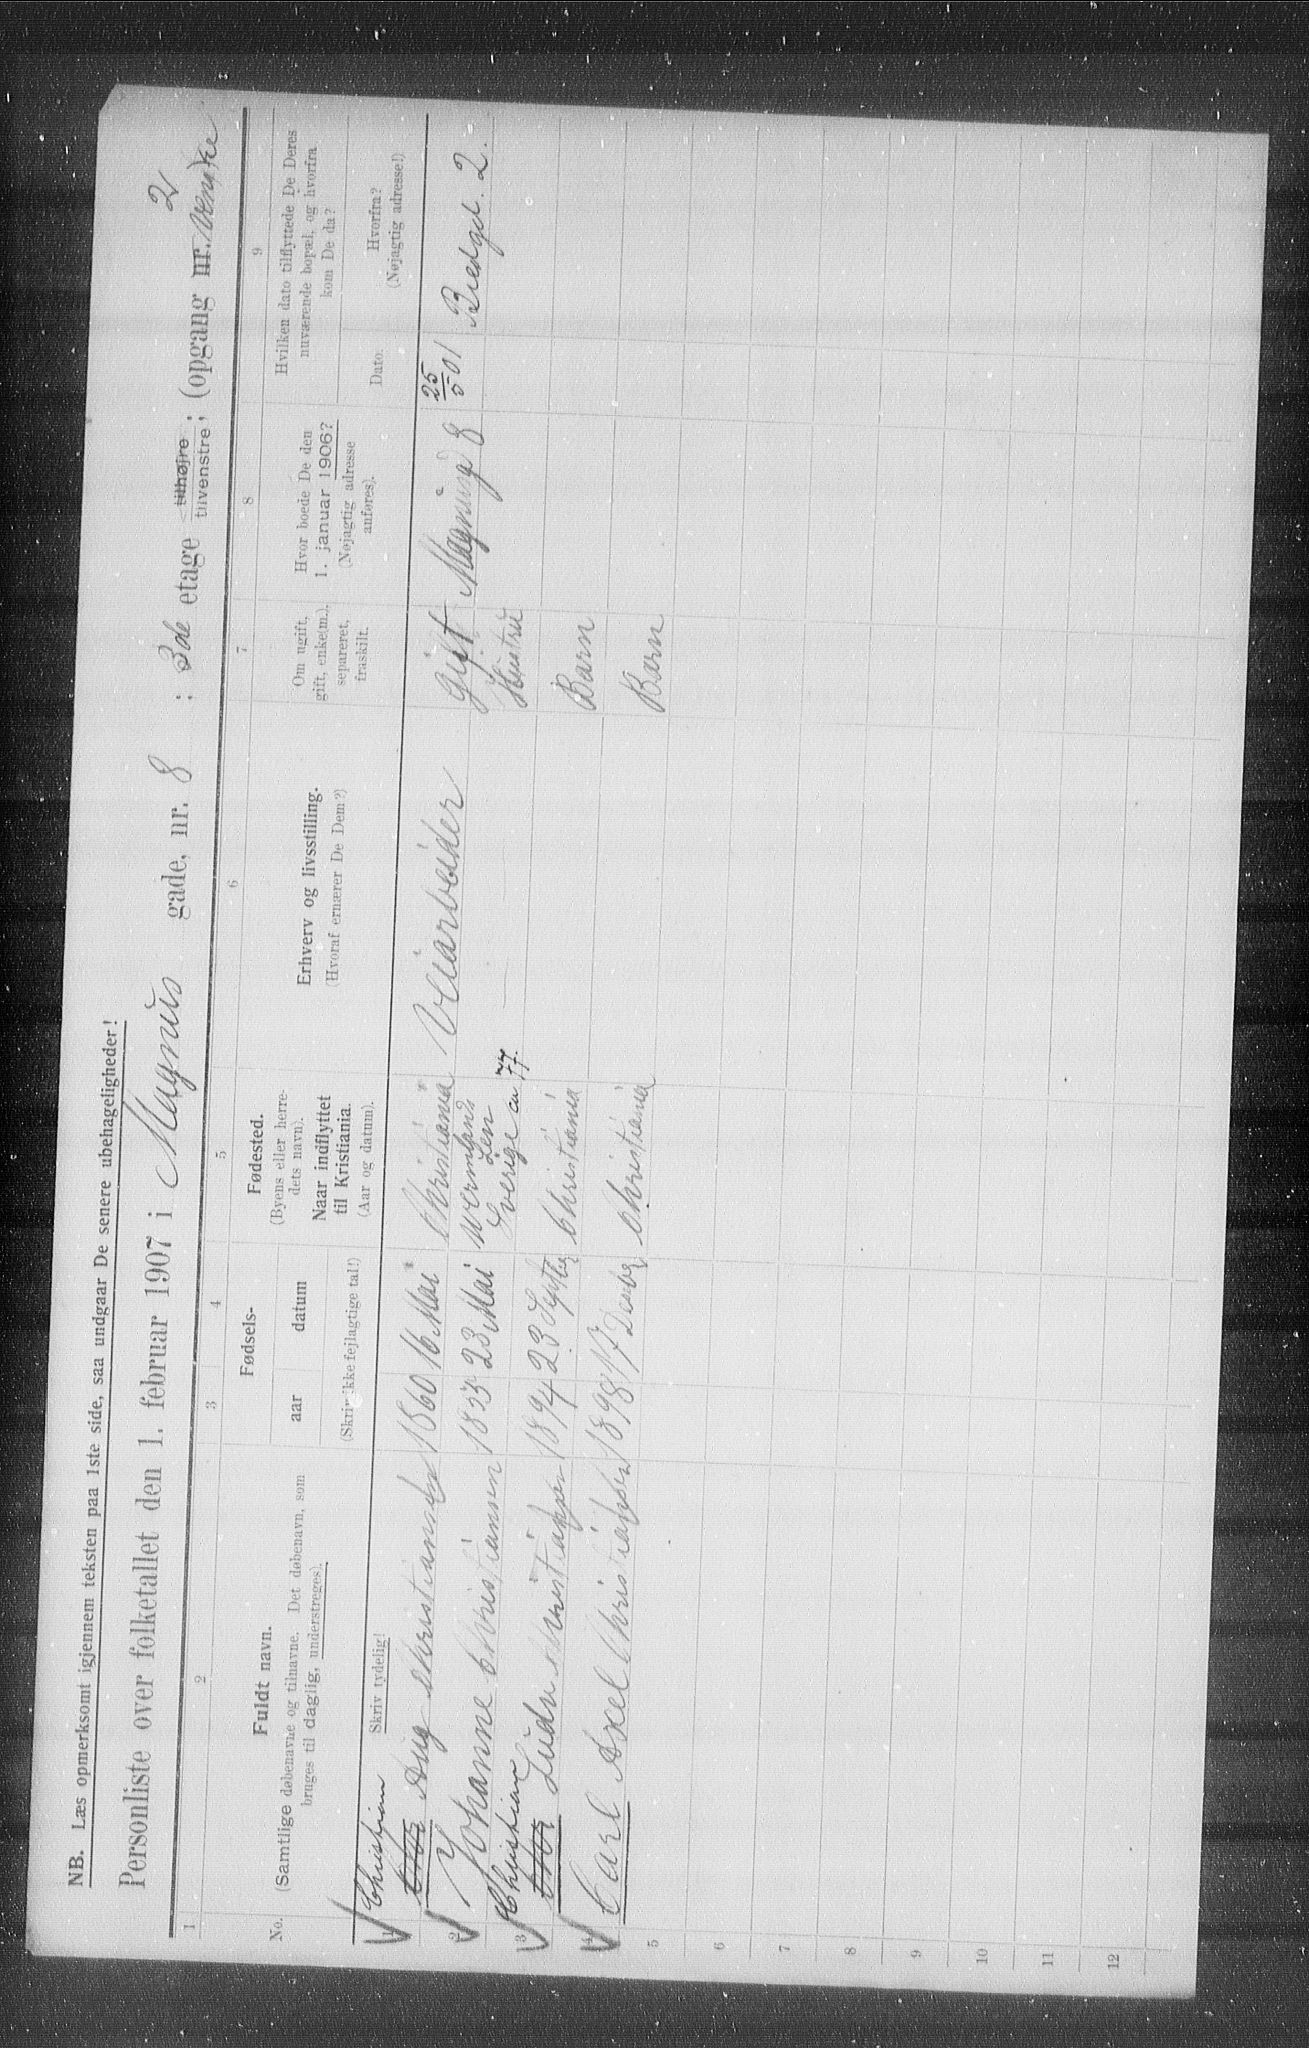 NB. Læs opmerksomt igjennem teksten paa 1ste side, saa undgaar De senere ubehageligheder!
Personliste over folketallet den 1. februar 1907 i Magnus gade, nr. 8 : 3de etage tilhøjre tilvenstre; (opgang nr. 2
1 2 3 4 5 6 7 8 9
No.
Fuldt navn.
(Samtlige døbenavne og tilnavne. Det døbenavn, som
bruges til daglig, understreges).
Skriv tydelig!
Fødsels-
aar datum
(Skriv ikke fejlagtige tal!)
Fødested.
(Byens eller herre-
dets navn).
Naar indflyttet
til Kristiania.
(Aar og datum).
Erhverv og livsstilling.
(Hvoraf ernærer De Dem?)
Om ugift,
gift, enke(m.),
separeret,
fraskilt.
Hvor boede De den
1. januar 1906?
(Nøjagtig adresse
anføres).
Hvilken dato tilflyttede De Deres
nuværende bopæl, og hvorfra
kom De da?
Dato:
Hvorfra?
(Nøjagtig adresse!)
Christian
1 Aug Christiansen 1860 16 Mai Christiania Veiarbeider gift Magnusg 8 25/5 01 Bredgd. 2.
2 Johanne Christiansen 23 Mai Wermlands Len Sverige ca 77. Hustru
Christian
3 Ludv Christiansen 1894 23 Septbr Christiania Barn
4 Carl Axel Christiansen 1898 17 Desbr Christiania Barn
5
6
7
8
9
10
11
12